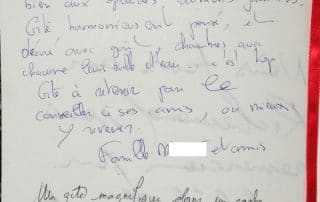 bien aux
Gîte harmonieux et pensé, et
décoré avec goût, chambres avec
chacune leur salle d'eau... c'est top
Gîte à retenir pour le
conseiller à ses amis, ou mieux
y revenir.
Famille M et amis
Un gîte magnifique dans un cadre